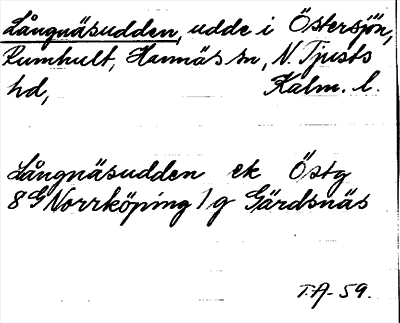 Långnäsudden, udde i Östersjön,
Rumhult, Hannäs sn, N. Tjusts
hd, Kalm. l.
Långnäsudden ek Östg
8G Norrköping 1g Gärdsnäs
T.A-59.